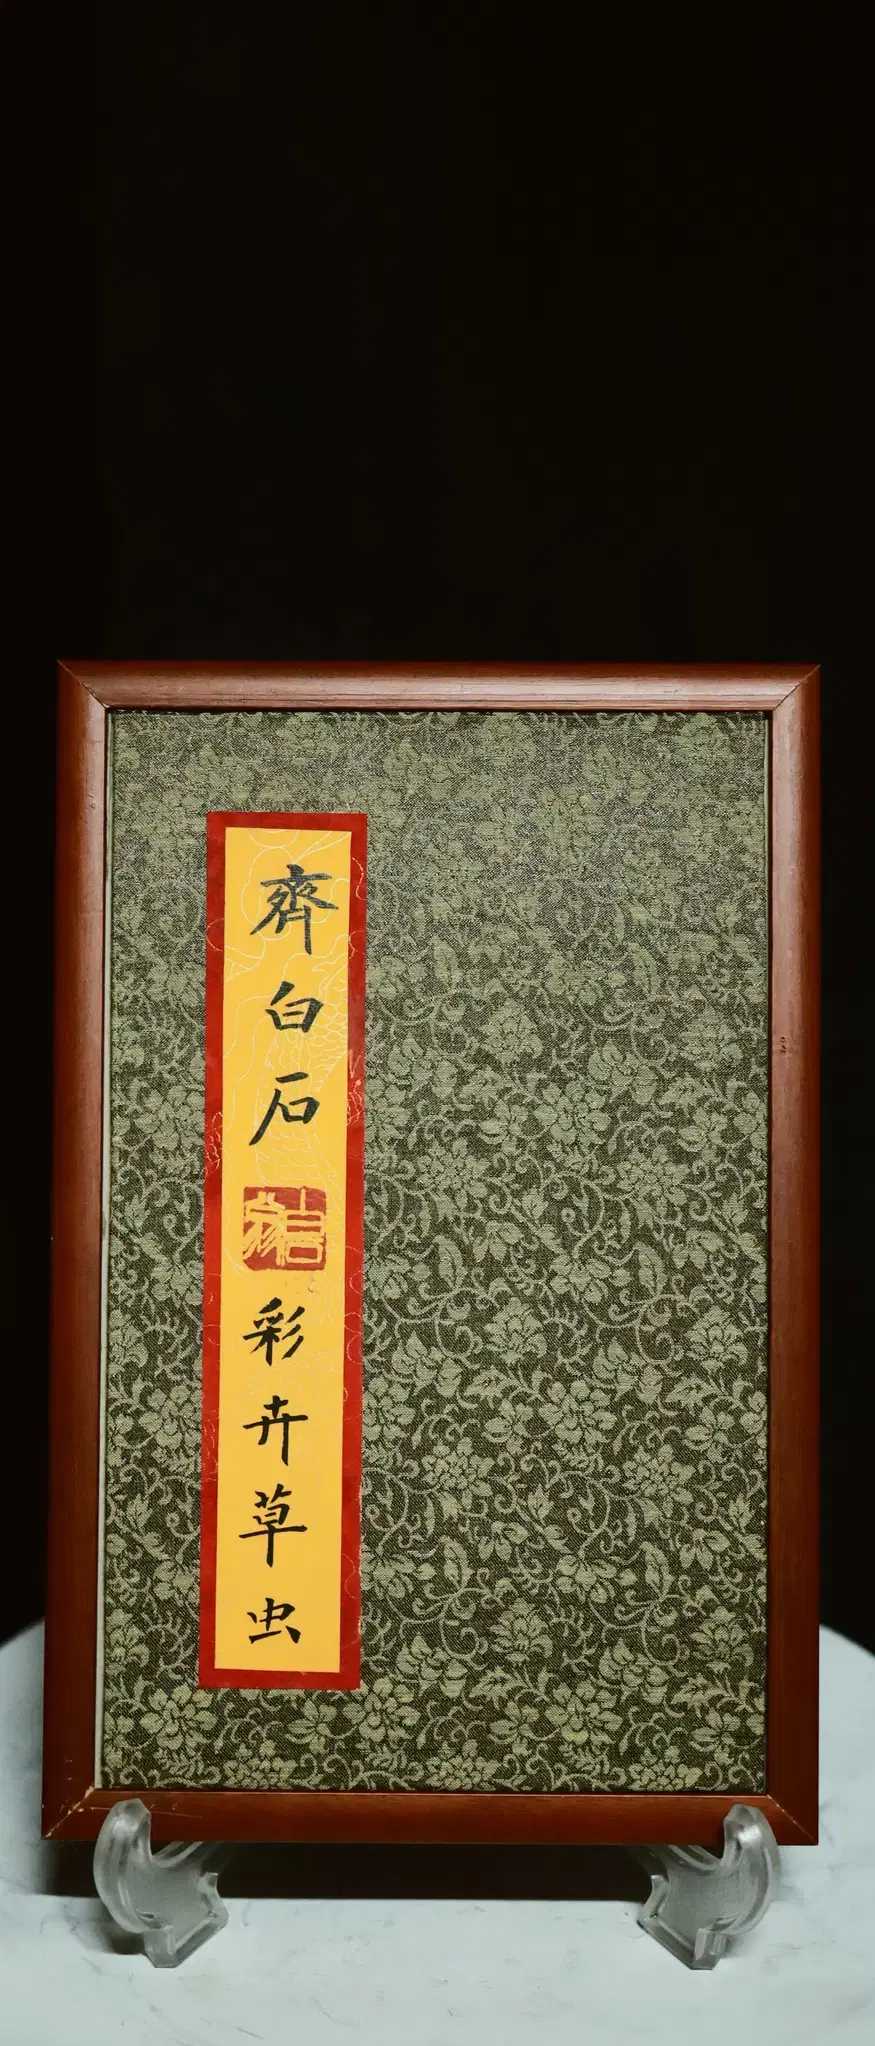 齊白石
彩卉草虫